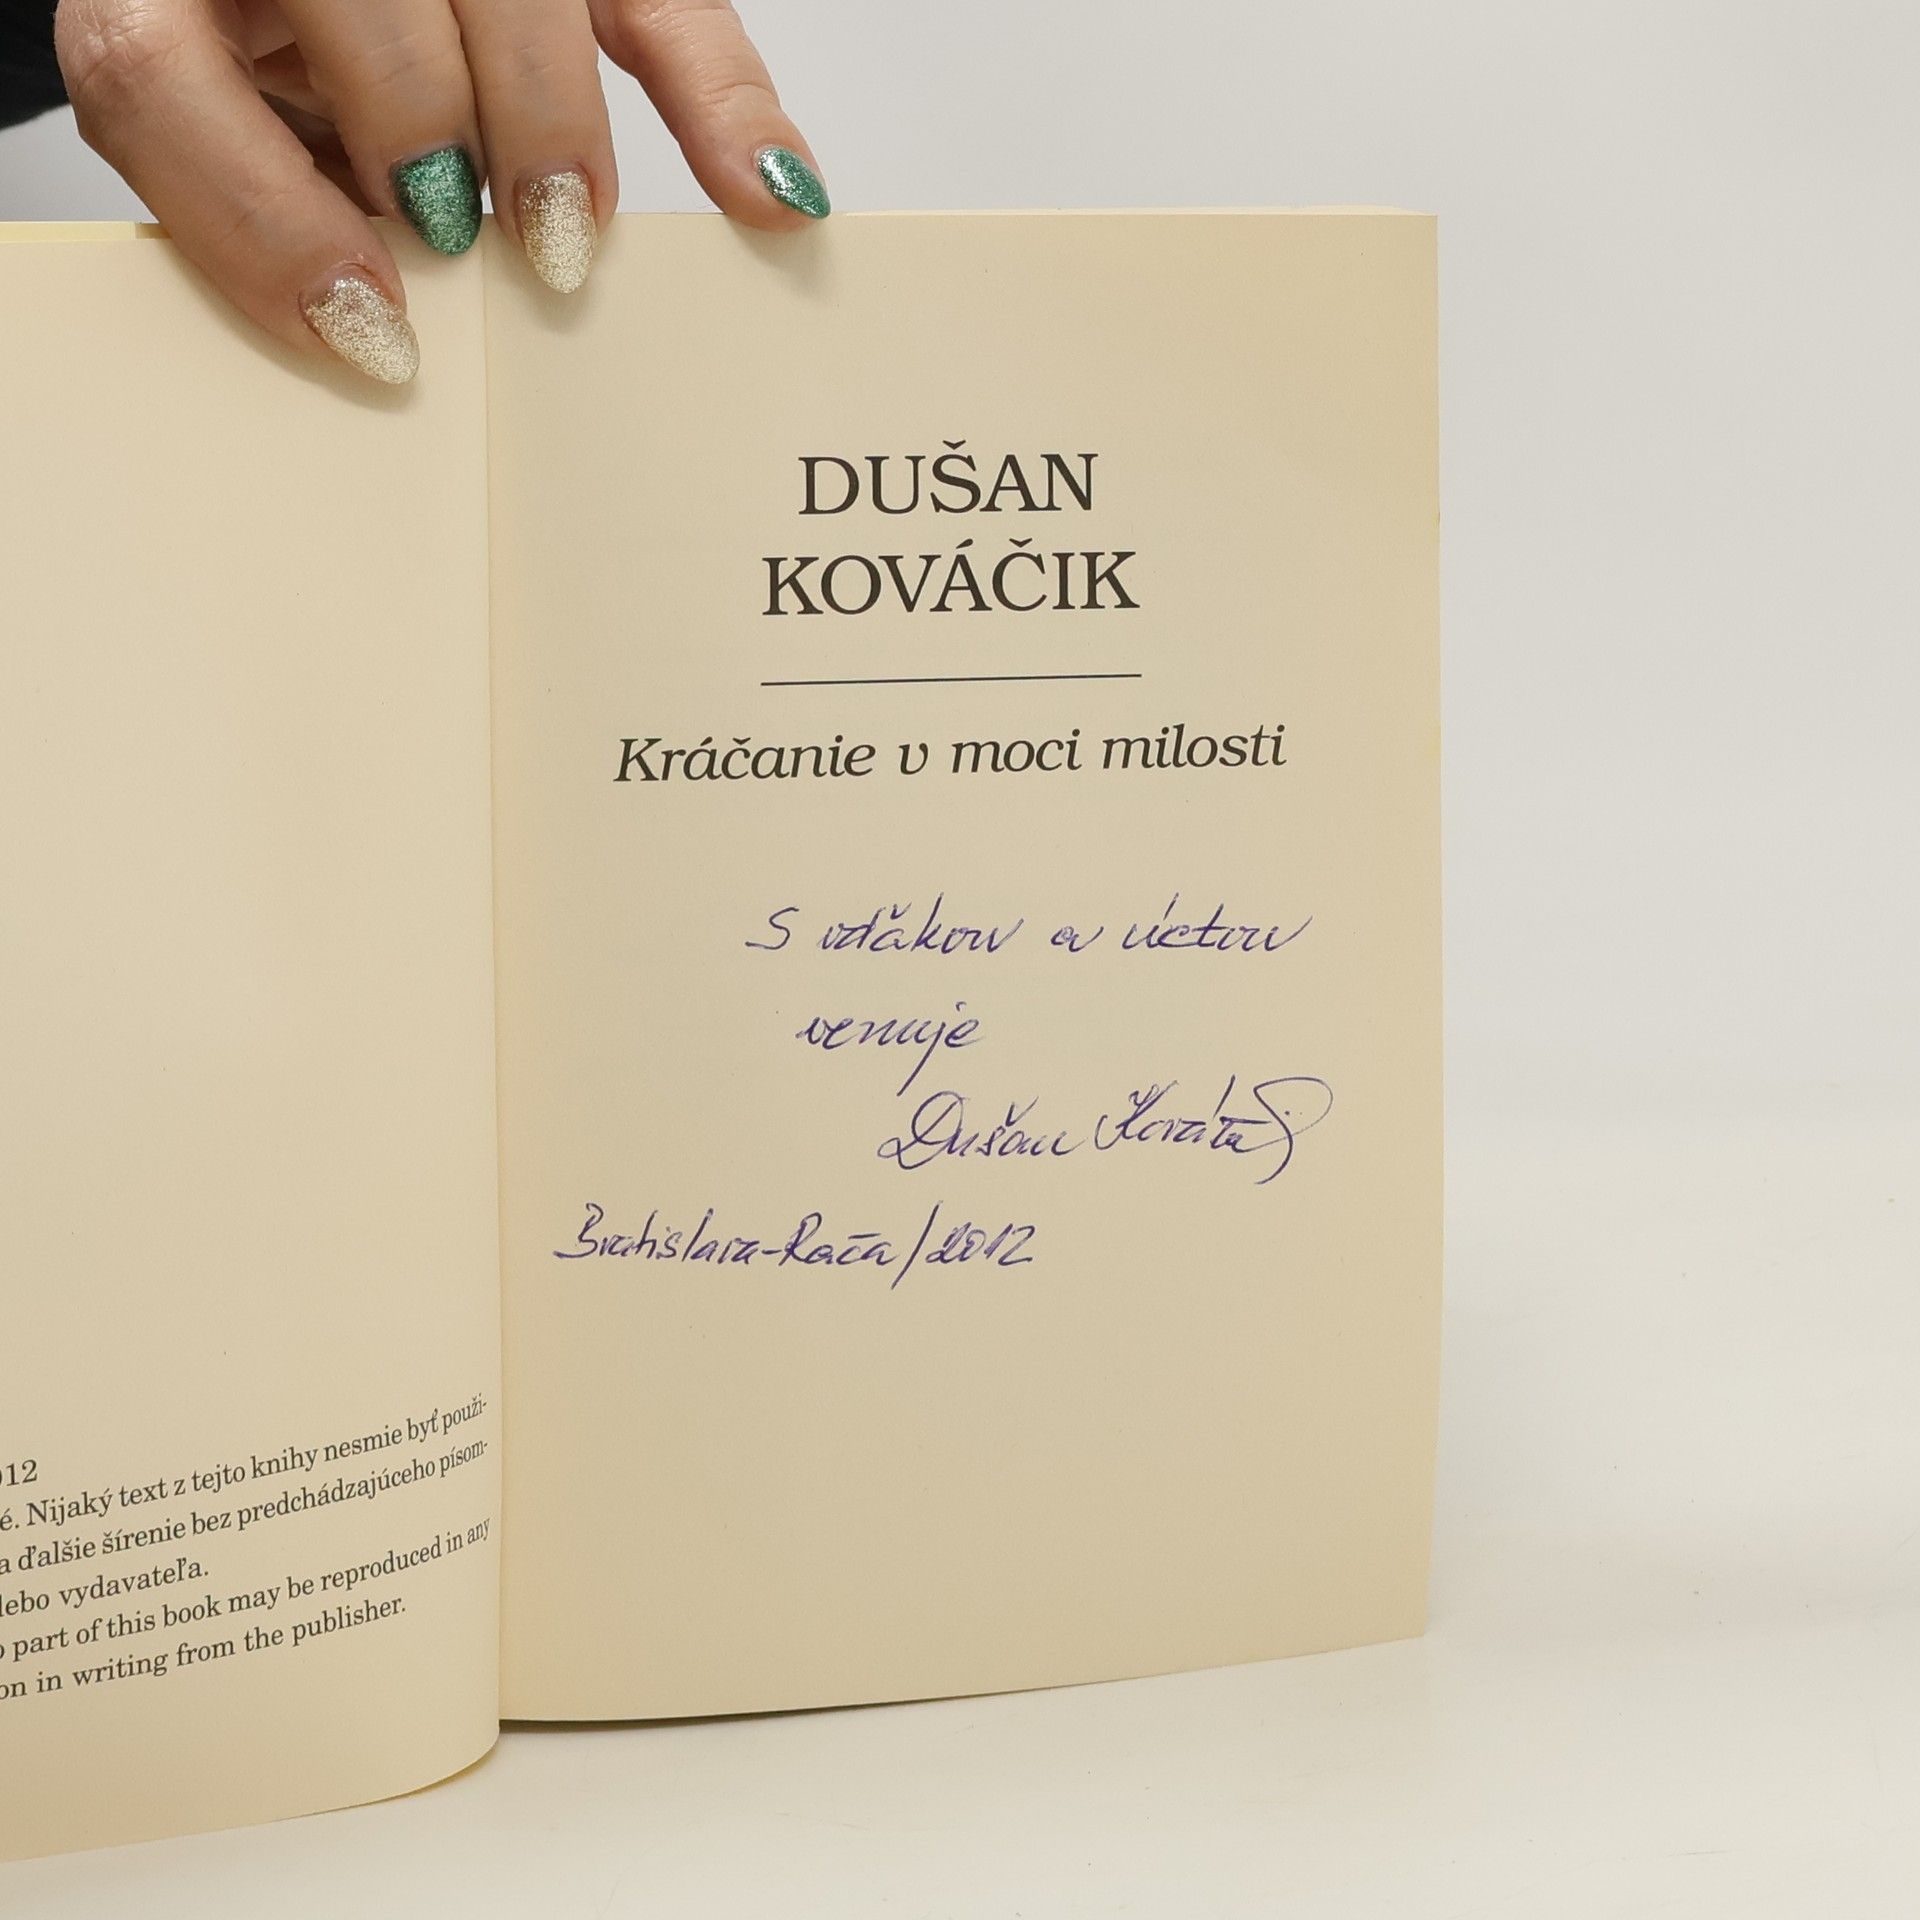 012
é. Nijaký text z tejto knihy nesmie byť použi-
a ďalšie šírenie bez predchádzajúceho písom-
lebo vydavateľa.
o part of this book may be reproduced in any
on in writing from the publisher.
DUŠAN
KOVÁČIK
Kráčanie v moci milosti
S vďakou a úctou
venuje
Dušan Kováčik
Bratislava-Rača/2012